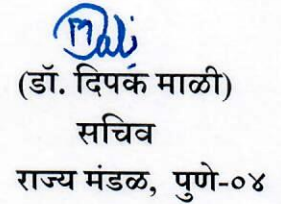 (डॉ. दिपक माळी)
सचिव
राज्य मंडळ, पुणे-०४